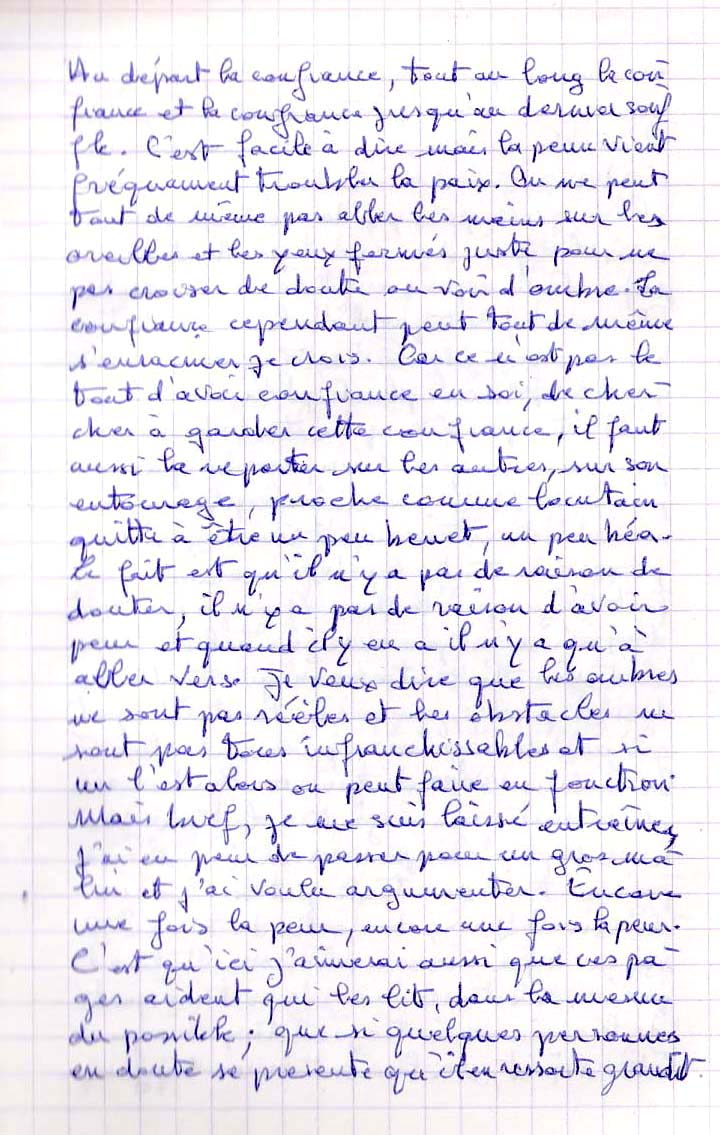 Au départ la confiance, tout au long la con-
fiance et la confiance jusqu'au dernier souf
fle. C'est facile à dire mais la peur vient
fréquament troubler la paix. On ne peut
tout de même pas aller les mains sur les
oreilles et les yeux fermés juste pour ne
pas croiser de doute ou voir d'ombre. La
confiance cependant peut tout de même
s'enraciner je crois. Car ce n'est pas le
tout d'avoir confiance en soi, de cher-
cher à garder cette confiance, il faut
aussi la reporter sur les autres, sur son
entourage, proche comme lointain
quitte à être un peu benet, un peu béa.
Le fait est qu'il n'y a pas de raison de
douter, il n'y a pas de raison d'avoir
peur et quand il y en a il n'y a qu'à
aller vers. Je veux dire que les ombres
ne sont pas réèles et les obstacles ne
sont pas tous infranchissables et si
un l'est alors on peut faire en fonction.
Mais bref, je me suis laissé entraîner,
j'ai eu peur de passer pour un gros ma-
lin et j'ai voulu argumenter. Encore
une fois la peur, encore une fois la peur.
C'est qu'ici j'aimerai aussi que ces pa-
ges aident qui les lit, dans la mesure
du possible ; que si quelques personnes
en doute se présente qu'il en ressorte grandit.